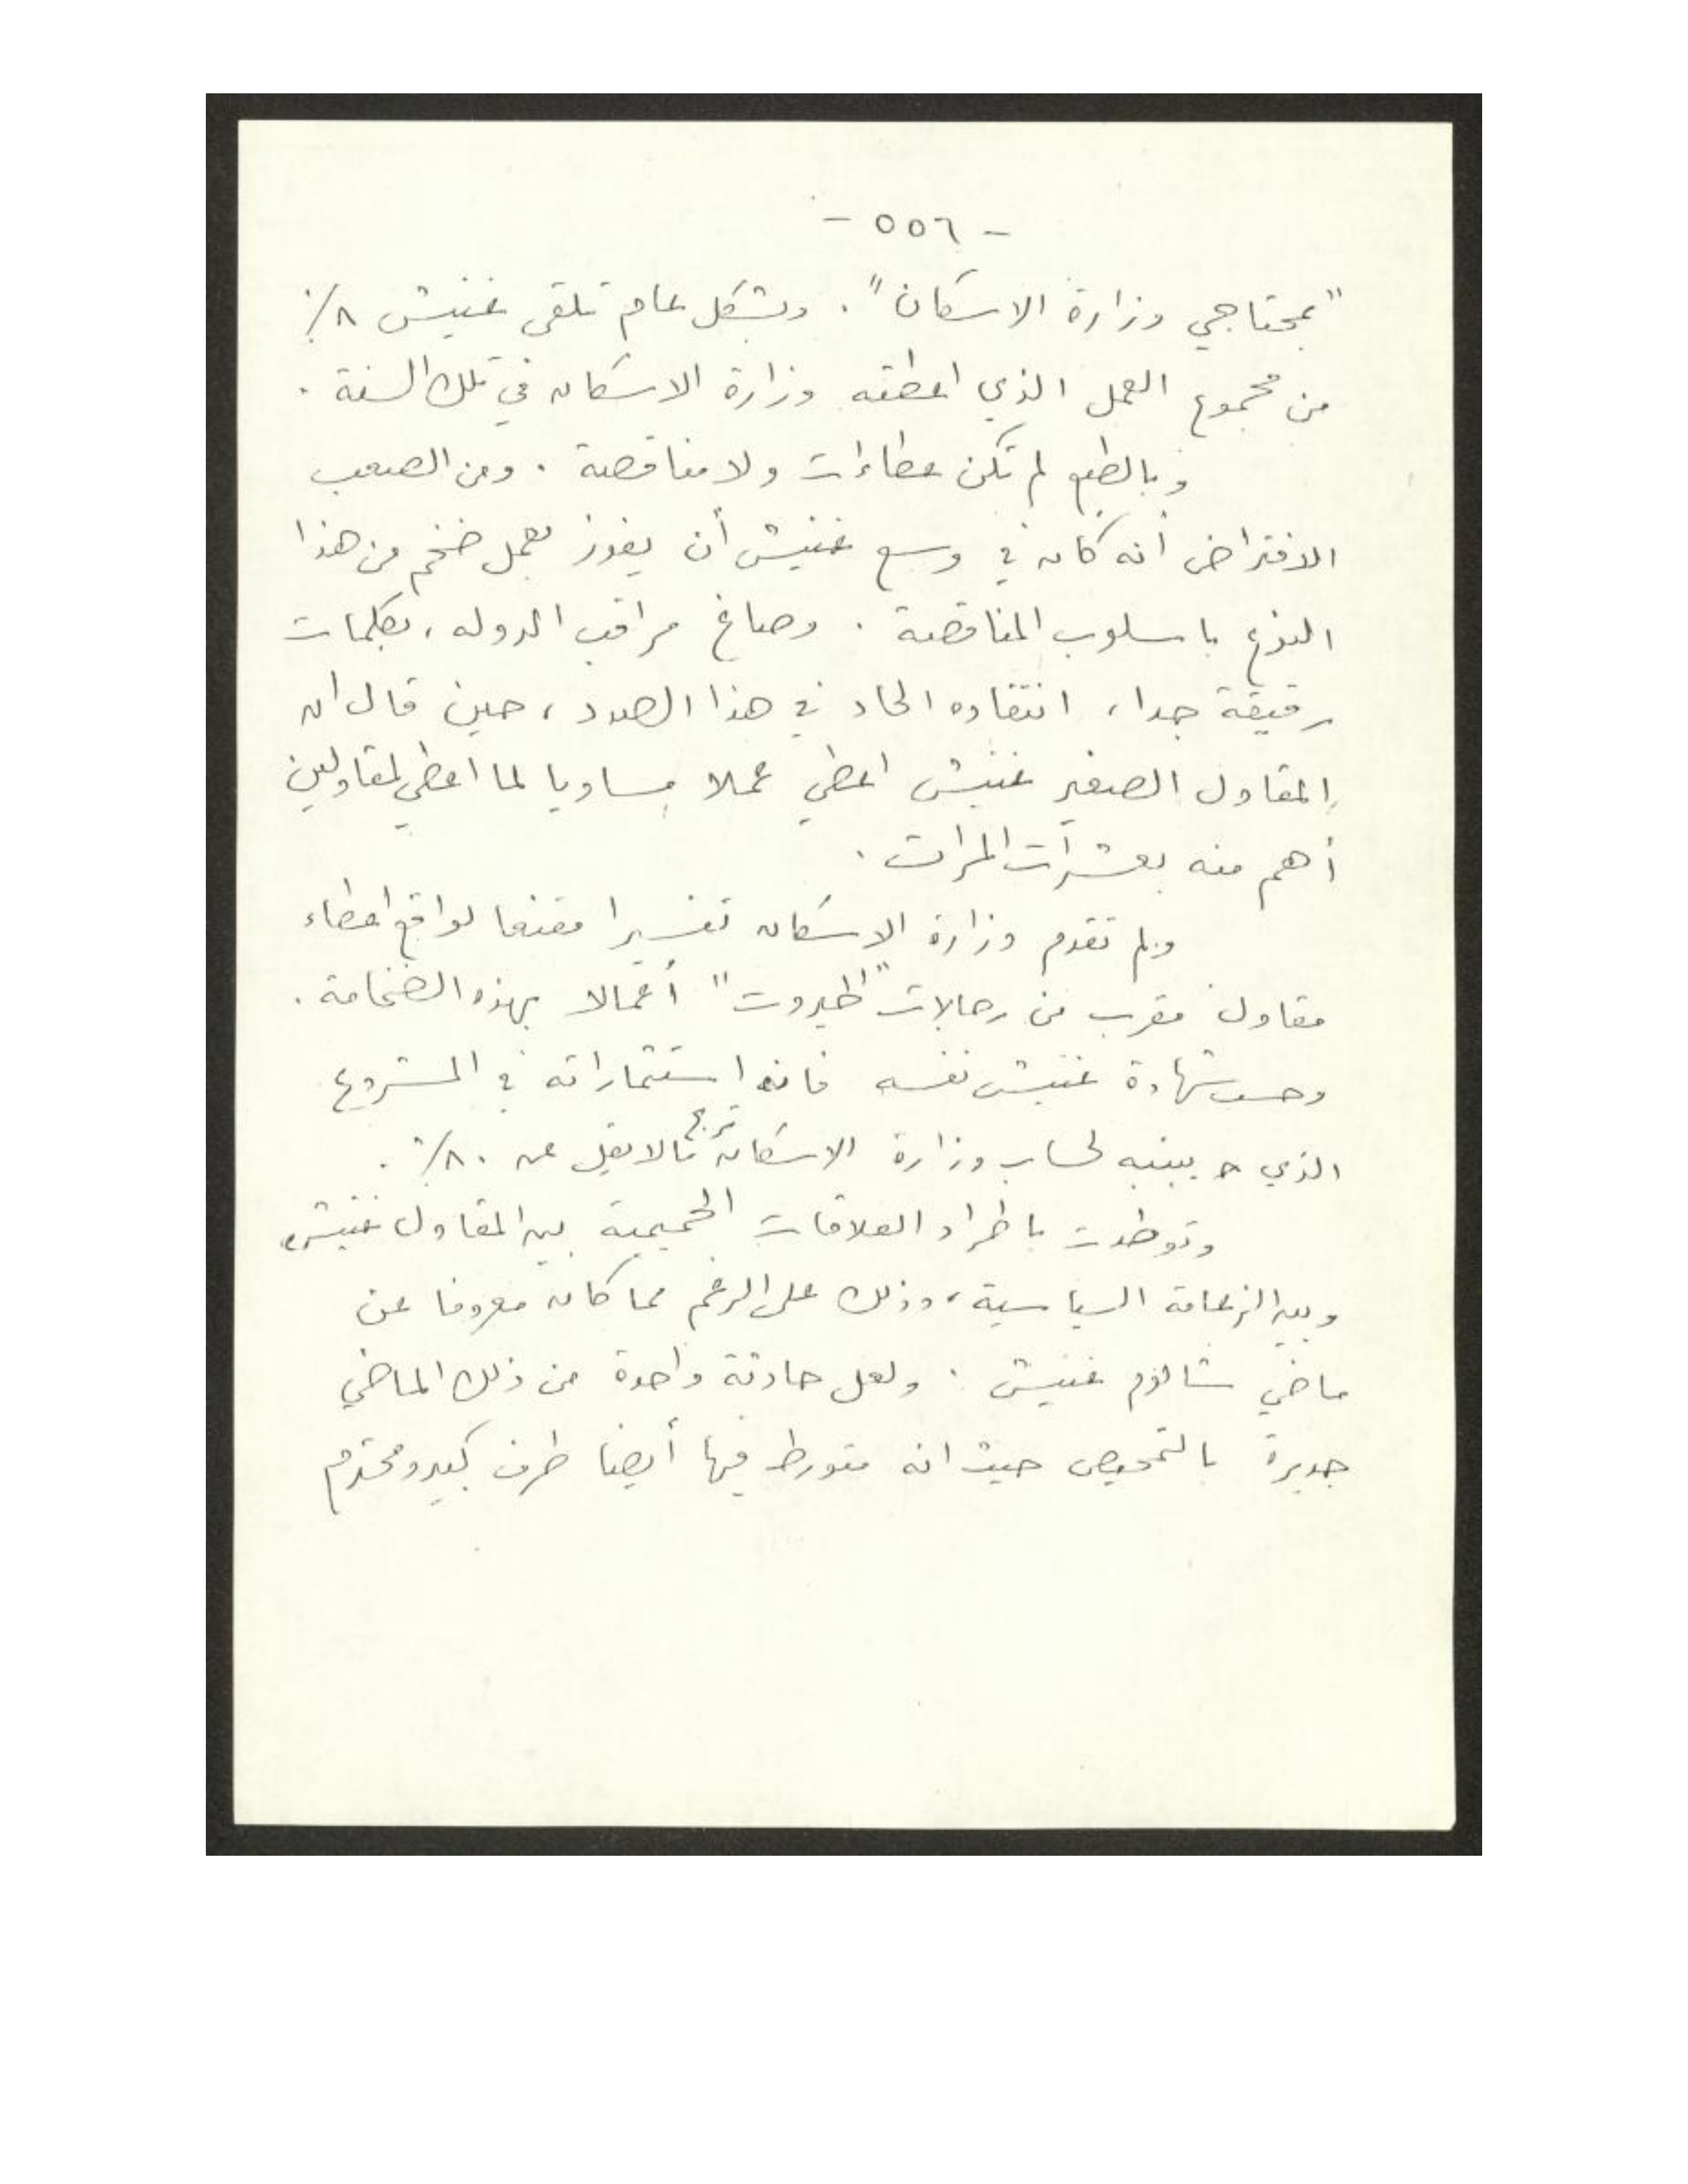 - ٥٥٦ -
"بمحتاجي وزارة الاسكان". وبشكل عام تلقى غنيش ٨٪
من مجموع العمل الذي اعطته وزارة الاسكان في تلك السنة .
وبالطبع لم تكن عطاءات ولا مناقصة . ومن الصعب
الافتراض أنه كان في وسع غنيش أن يفوز بعمل ضخم من هذا
النوع باسلوب المناقصة . وصاغ مراقب الدوله ، بكلمات
رقيقة جدا ، انتقاده الحاد في هذا الصدد ، حين قال ان
المقاول الصغير غنيش اعطي عملا مساويا لما اعطي لمقاولين
أهم منه بعشرات المرات .
ولم تقدم وزارة الاسكان تفسيرا مقنعا لواقع اعطاء
مقاول مقرب من رجالات "حيروت" أعمالا بهذه الضخامة .
وحسب شهادة غنيش نفسه فان استثماراته في المشروع
الذي يبنيه لحساب وزارة الاسكان تربح ما لا يقل عن ٨٠٪ .
وتوطدت باطراد العلاقات الحميمية بين المقاول غنيش
وبين الزعامة السياسية ، وذلك على الرغم مما كان معروفا عن
ماضي شالوم غنيش . ولعل حادثة واحدة من ذلك الماضي
جديرة بالتمحيص حيث انه متورط فيها أيضا طرف كبير ومحترم